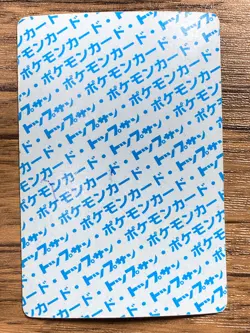 ポケモンカード・
トップサン・ポケモンカード
ポケモンカード・トップサン
トップサン・ポケモンカード
ポケモンカード・トップサン
トップサン・ポケモンカード
ポケモンカード・トップサン
トップサン・ポケモンカード
ポケモンカード・トップサン
トップサン・ポケモンカード
ポケモンカード・トップサン
トップサン・ポケモンカード
ポケモンカード・トップサン